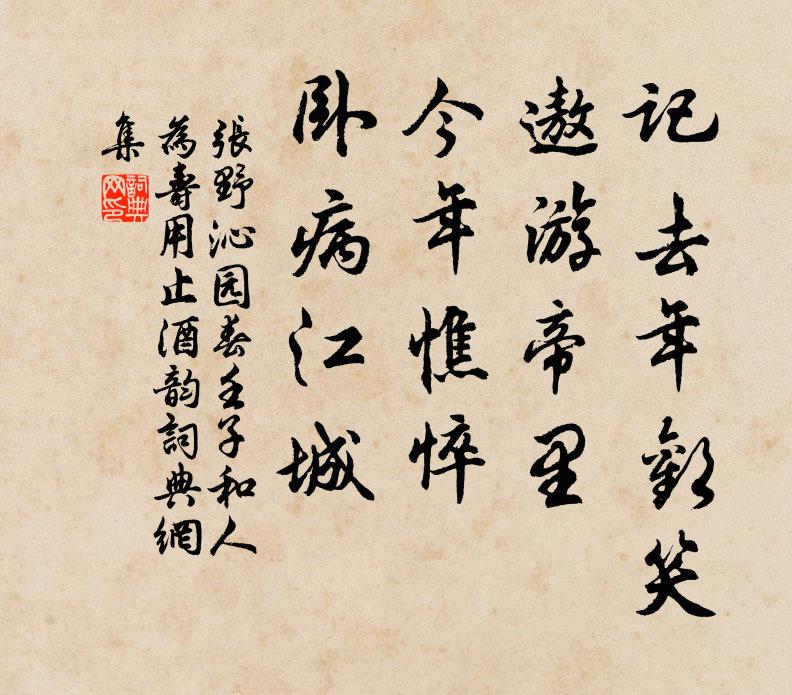 记去年歡笑
遨游帝里
今年憔悴
卧病江城
張野沁园春壬子和人
為壽用止酒韵詞典網
集
詞典
网印